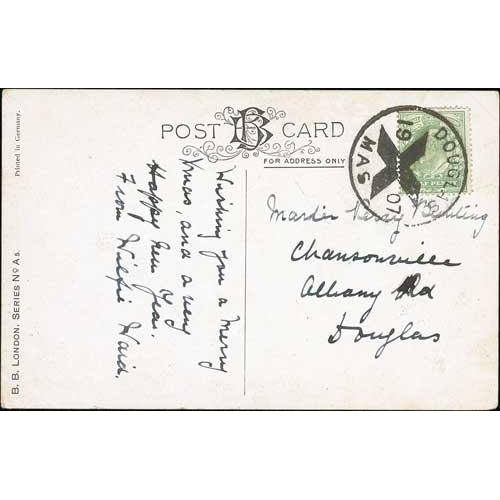 POST CARD
FOR ADDRESS ONLY
Printed in Germany.
B. B. LONDON. SERIES No As.
Wishing you a Merry
Xmas, and a very
Happy New Year.
From Wilfie
DOUGLAS
19 07
MAS
Percy
Chansonville
Albany Rd
Douglas